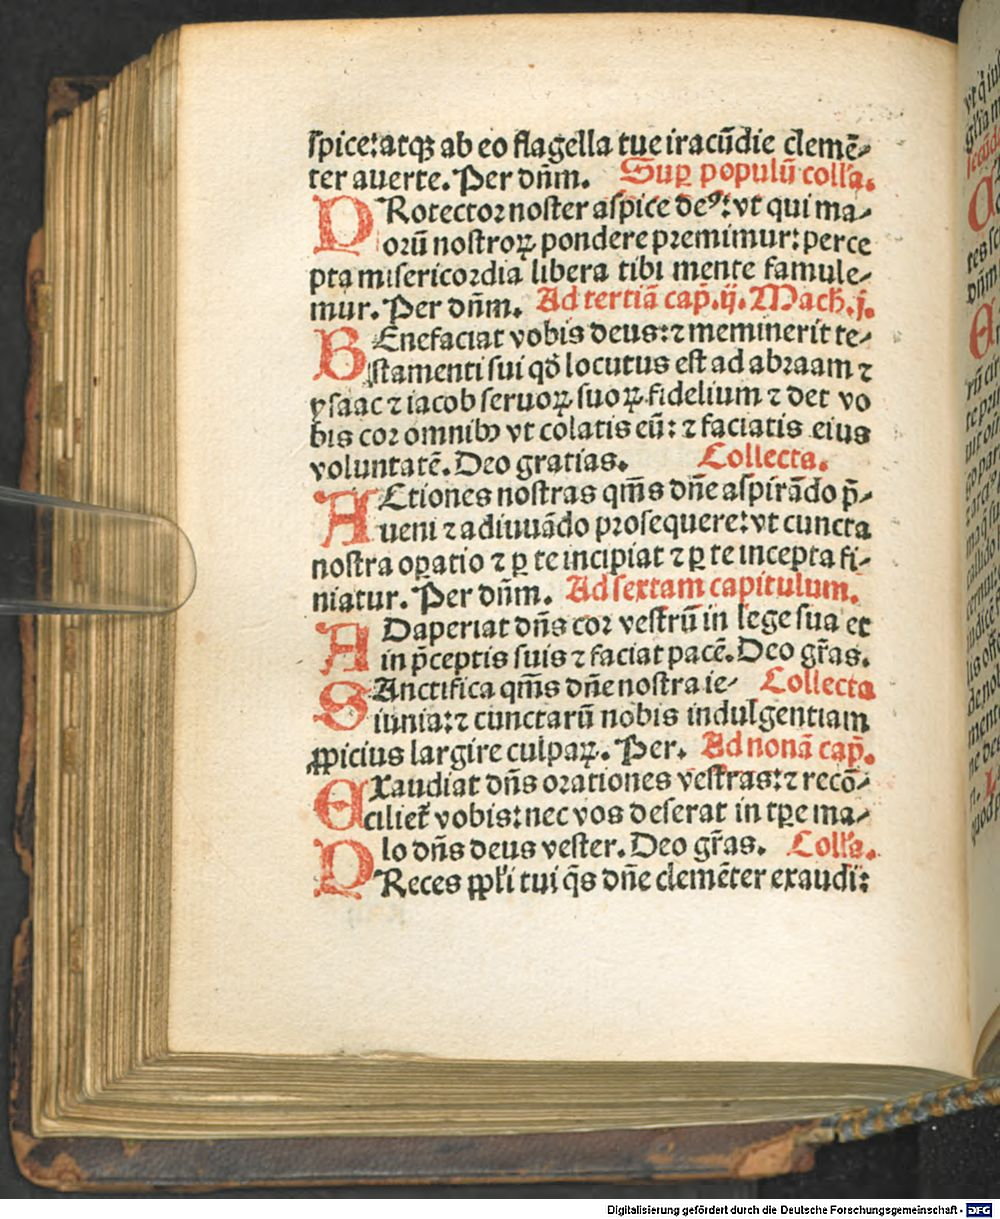 spice:atqꝫ ab eo flagella tue iracūdie clemē-
ter auerte. Per dñm. Suꝑ populū coll'a.
PRotector noster aspice deꝰ: vt qui ma-
lorū nostroꝝ pondere premimur: perce
pta misericordia libera tibi mente famule-
mur. Per dñm. Ad tertiā cap̄. ij. Mach. j.
BEnefaciat vobis deus: ⁊ meminerit te-
stamenti sui qd̄ locutus est ad abraam ⁊
ysaac ⁊ iacob seruoꝝ suoꝝ fidelium ⁊ det vo
bis cor omnibꝰ vt colatis eū: ⁊ faciatis eius
voluntatē. Deo gratias. Collecta.
ACtiones nostras qm̄s dñe aspirādo p̄-
ueni ⁊ adiuuādo prosequere: vt cuncta
nostra oꝑatio ⁊ ꝑ te incipiat ⁊ ꝑ te incepta fi-
niatur. Per dñm. Ad sextam capitulum.
ADaperiat dñs cor vestrū in lege sua et
in p̄ceptis suis ⁊ faciat pacē. Deo gr̄as.
SAnctifica qm̄s dñe nostra ie- Collecta
iunia: ⁊ cunctarū nobis indulgentiam
ꝓpicius largire culpaꝝ. Per. Ad nonā cap̄.
EXaudiat dñs orationes vestras: ⁊ recō-
ciliet᷑ vobis: nec vos deserat in tꝑe ma-
lo dñs deus vester. Deo gr̄as. Coll'a.
PReces ꝓpl'i tui q̄s dñe clemēter exaudi:
Digitalisierung gefördert durch die Deutsche Forschungsgemeinschaft - DFG